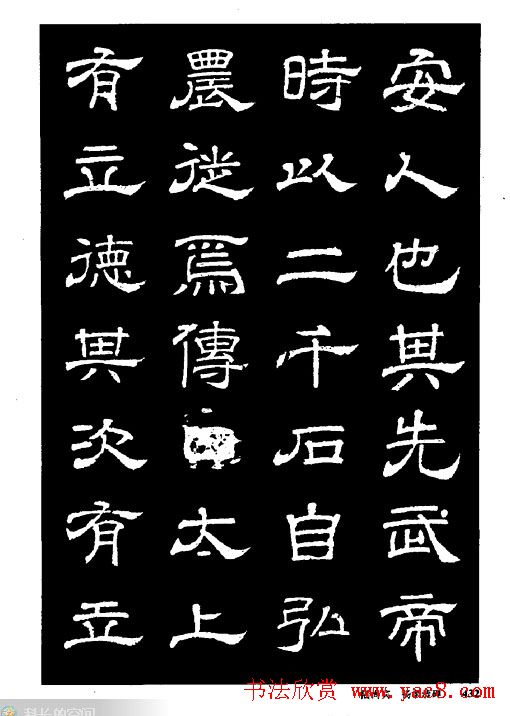 安人也其先武帝
時以二千石自弘
農徙焉傳太上
有立德其次有立
书法欣赏 www.yac8.com
432
科长的空间